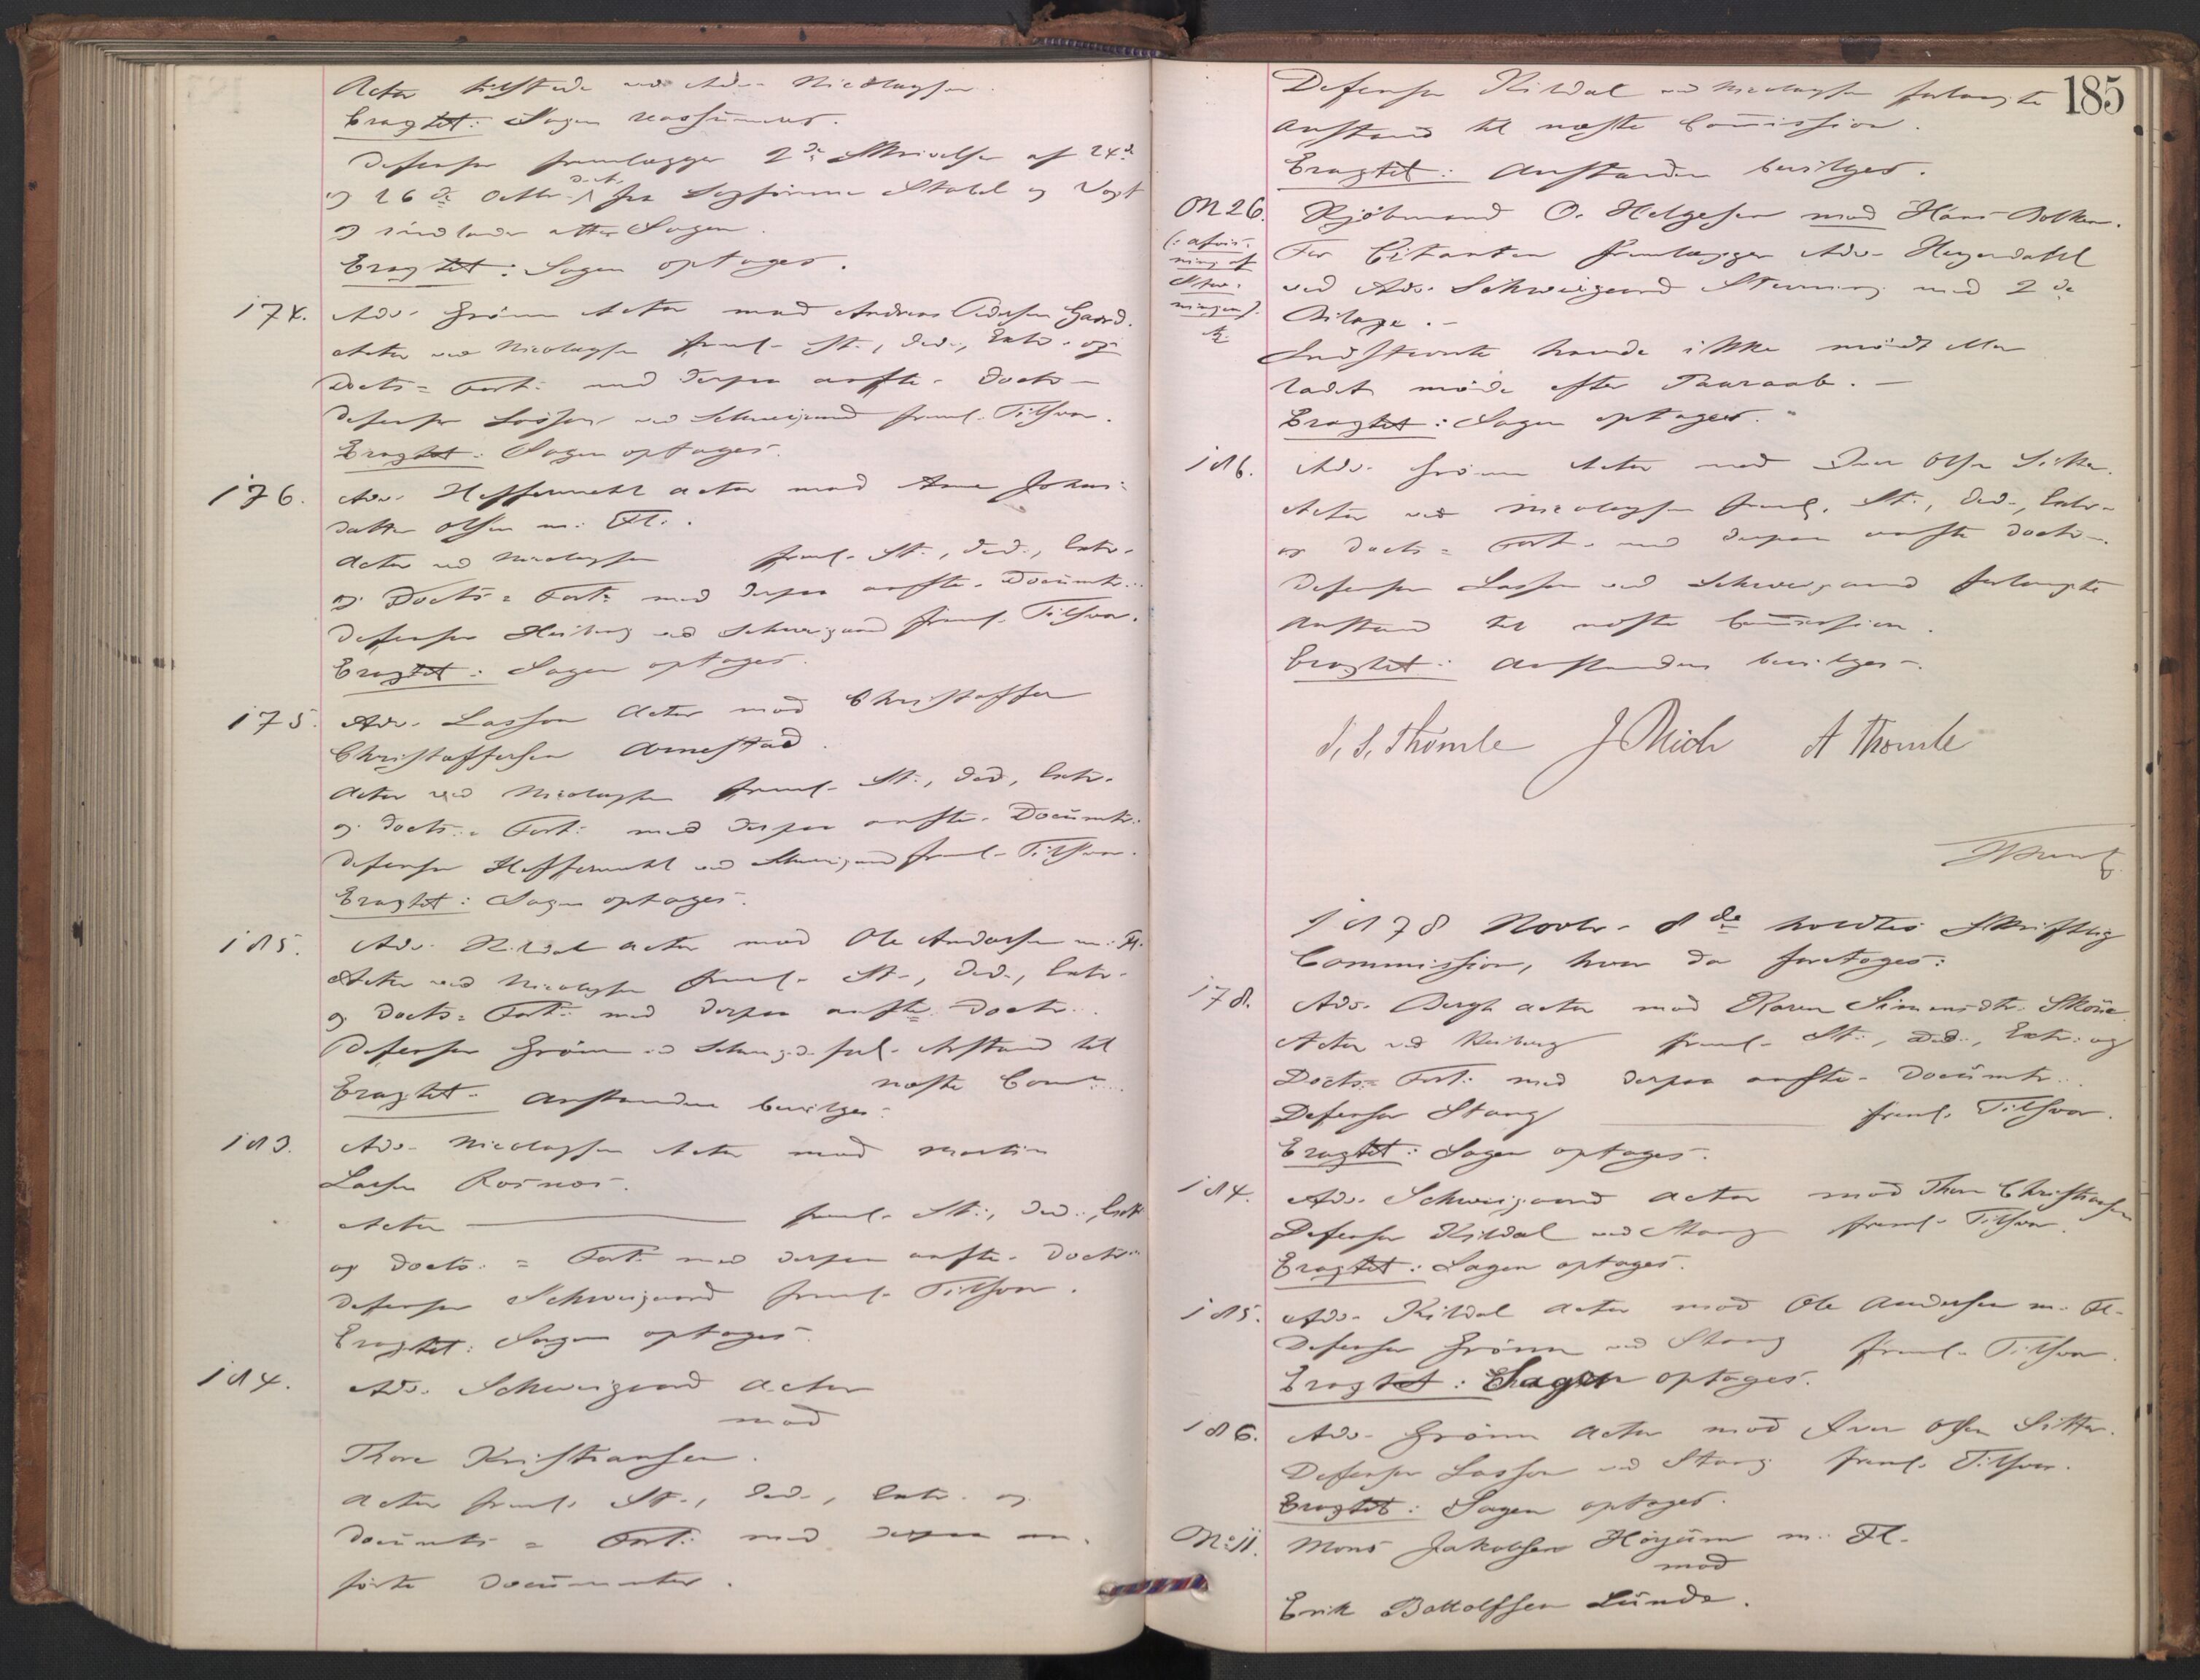 Actor tilstede ved Adv. Nicolaysen.
Eragtet: Sagen reassumeres.
Defensor fremlægger 2de Skrivelser af 24de
og 26de Octbr. d. A. fra Sogfirma Stabel og Vogt
og indlader atter Sagen.
Eragtet: Sagen optages.
174. Adv. Grönn Actor mod Andreas Pedersen Gaard.
Actor ved Nicolaysen freml. St., Ded., Extr. og
Docts = Fort. med derpaa anfte. Docts.
Defensor Lasson ved Schweigaard freml. Tilsvar.
Eragtet: Sagen optages.
176. Adv. Heffermehl Actor mod Anne Johns-
datter Olsen m. Fl.
Actor ved Nicolaysen freml. St., Ded., Extr.
og Docts = Fort. med derpaa anfte. Documtr.
Defensor Heiberg ved Schweigaard freml. Tilsvar.
Eragtet: Sagen optages.
175. Adv. Lasson Actor mod Christoffer
Christoffersen Arnestad.
Actor ved Nicolaysen freml. St., Ded., Extr.
og Docts. = Fort. med derpaa anfte. Documtr.
Defensor Heffermehl ved Schweigaard freml. Tilsvar.
Eragtet: Sagen optages.
185. Adv. Kildal Actor mod Ole Andersen m. Fl.
Actor ved Nicolaysen freml. St., Ded., Extr.
og Docts = Fort. med derpaa anfte Doctr.
Defensor Grönn ved Schweigd. forl. Anstand til
næste Comn.
Eragtet: Anstanden bevilges.
183. Adv. Nicolaysen Actor mod Martin
Larsen Rosnes.
Actor freml. St., Ded., Extr.
og Docts. = Fort. med derpaa anfte. Doctr.
Defensor Schweigaard freml. Tilsvar.
Eragtet: Sagen optages.
184. Adv. Schweigaard Actor
mod
Thore Kristiansen.
Actor freml. St., Ded., Extr. og
Documts = Fort. med derpaa an-
førte Documenter.
185
Defensor Kildal ved Nicolaysen forlangte
Anstand til næste Commission.
Eragtet: Anstanden bevilges.
N 26. Kjøbmand O. Helgesen mod Hans Bolken.
(: Afvis-
ning af
Stev-
ningen).
For Citanten fremlægger Adv. Heyerdahl
ved Adv. Schweigaard Stevning med 2de
Bilage. —
Indstevnte havde ikke mödt eller
ladet møde efter Paaraab. —
Eragtet: Sagen optages.
186. Adv. Grönn Actor mod Iver Olsen Sitter.
Actor ved Nicolaysen freml. St., Ded., Extr.
og Docts = Fort. med derpaa anfte Doctr.
Defensor Lasson ved Schweigaard forlangte
Anstand til næste Commission.
Eragtet: Anstanden bevilges.
A Thomle
1878 Novbr. 8de holdtes Skriftlig
Commission, hvor da foretoges:
178. Adv. Bergh Actor mod Karen Simensdtr.
Actor ved Heiberg freml. St., Ded., Extr. og
Docts = Fort. med derpaa anfte. Documtr.
Defensor Stang freml. Tilsvar.
Eragtet: Sagen optages.
184. Adv. Schweigaard Actor mod Thore Christiansen
Defensor Kildal ved Stang freml. Tilsvar.
Eragtet: Sagen optages.
185. Adv. Kildal Actor mod Ole Andersen m. Fl.
Defensor Grönn ved Stang freml. Tilsvar.
Eragtet: Sagen optages.
186. Adv. Grönn Actor mod Iver Olsen Sitter.
Defensor Lasson ved Stang freml. Tilsvar.
Eragtet: Sagen optages.
No 11. Mons Jakobsen Höyum m. Fl.
mod
Erik Bottolfsen Lunde.